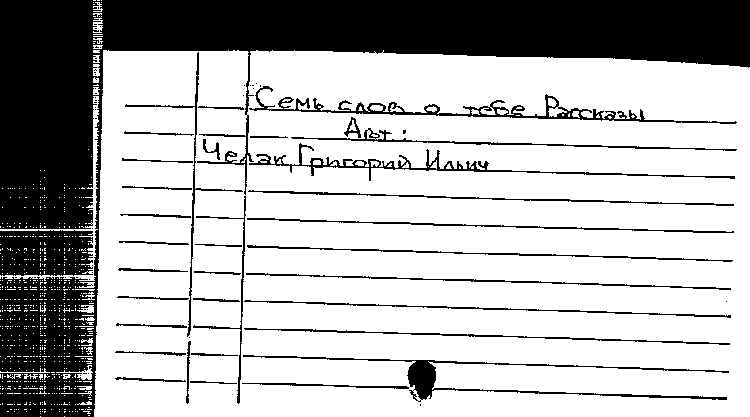 Семь слов о тебе. Рассказы
Авт:
Челак, Григорий Ильич